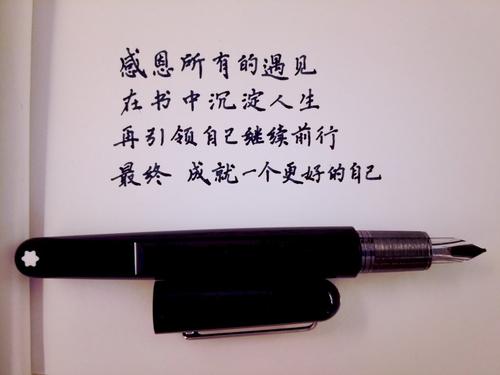 感恩所有的遇见
在书中沉淀人生
再引领自己继续前行
最终 成就一个更好的自己